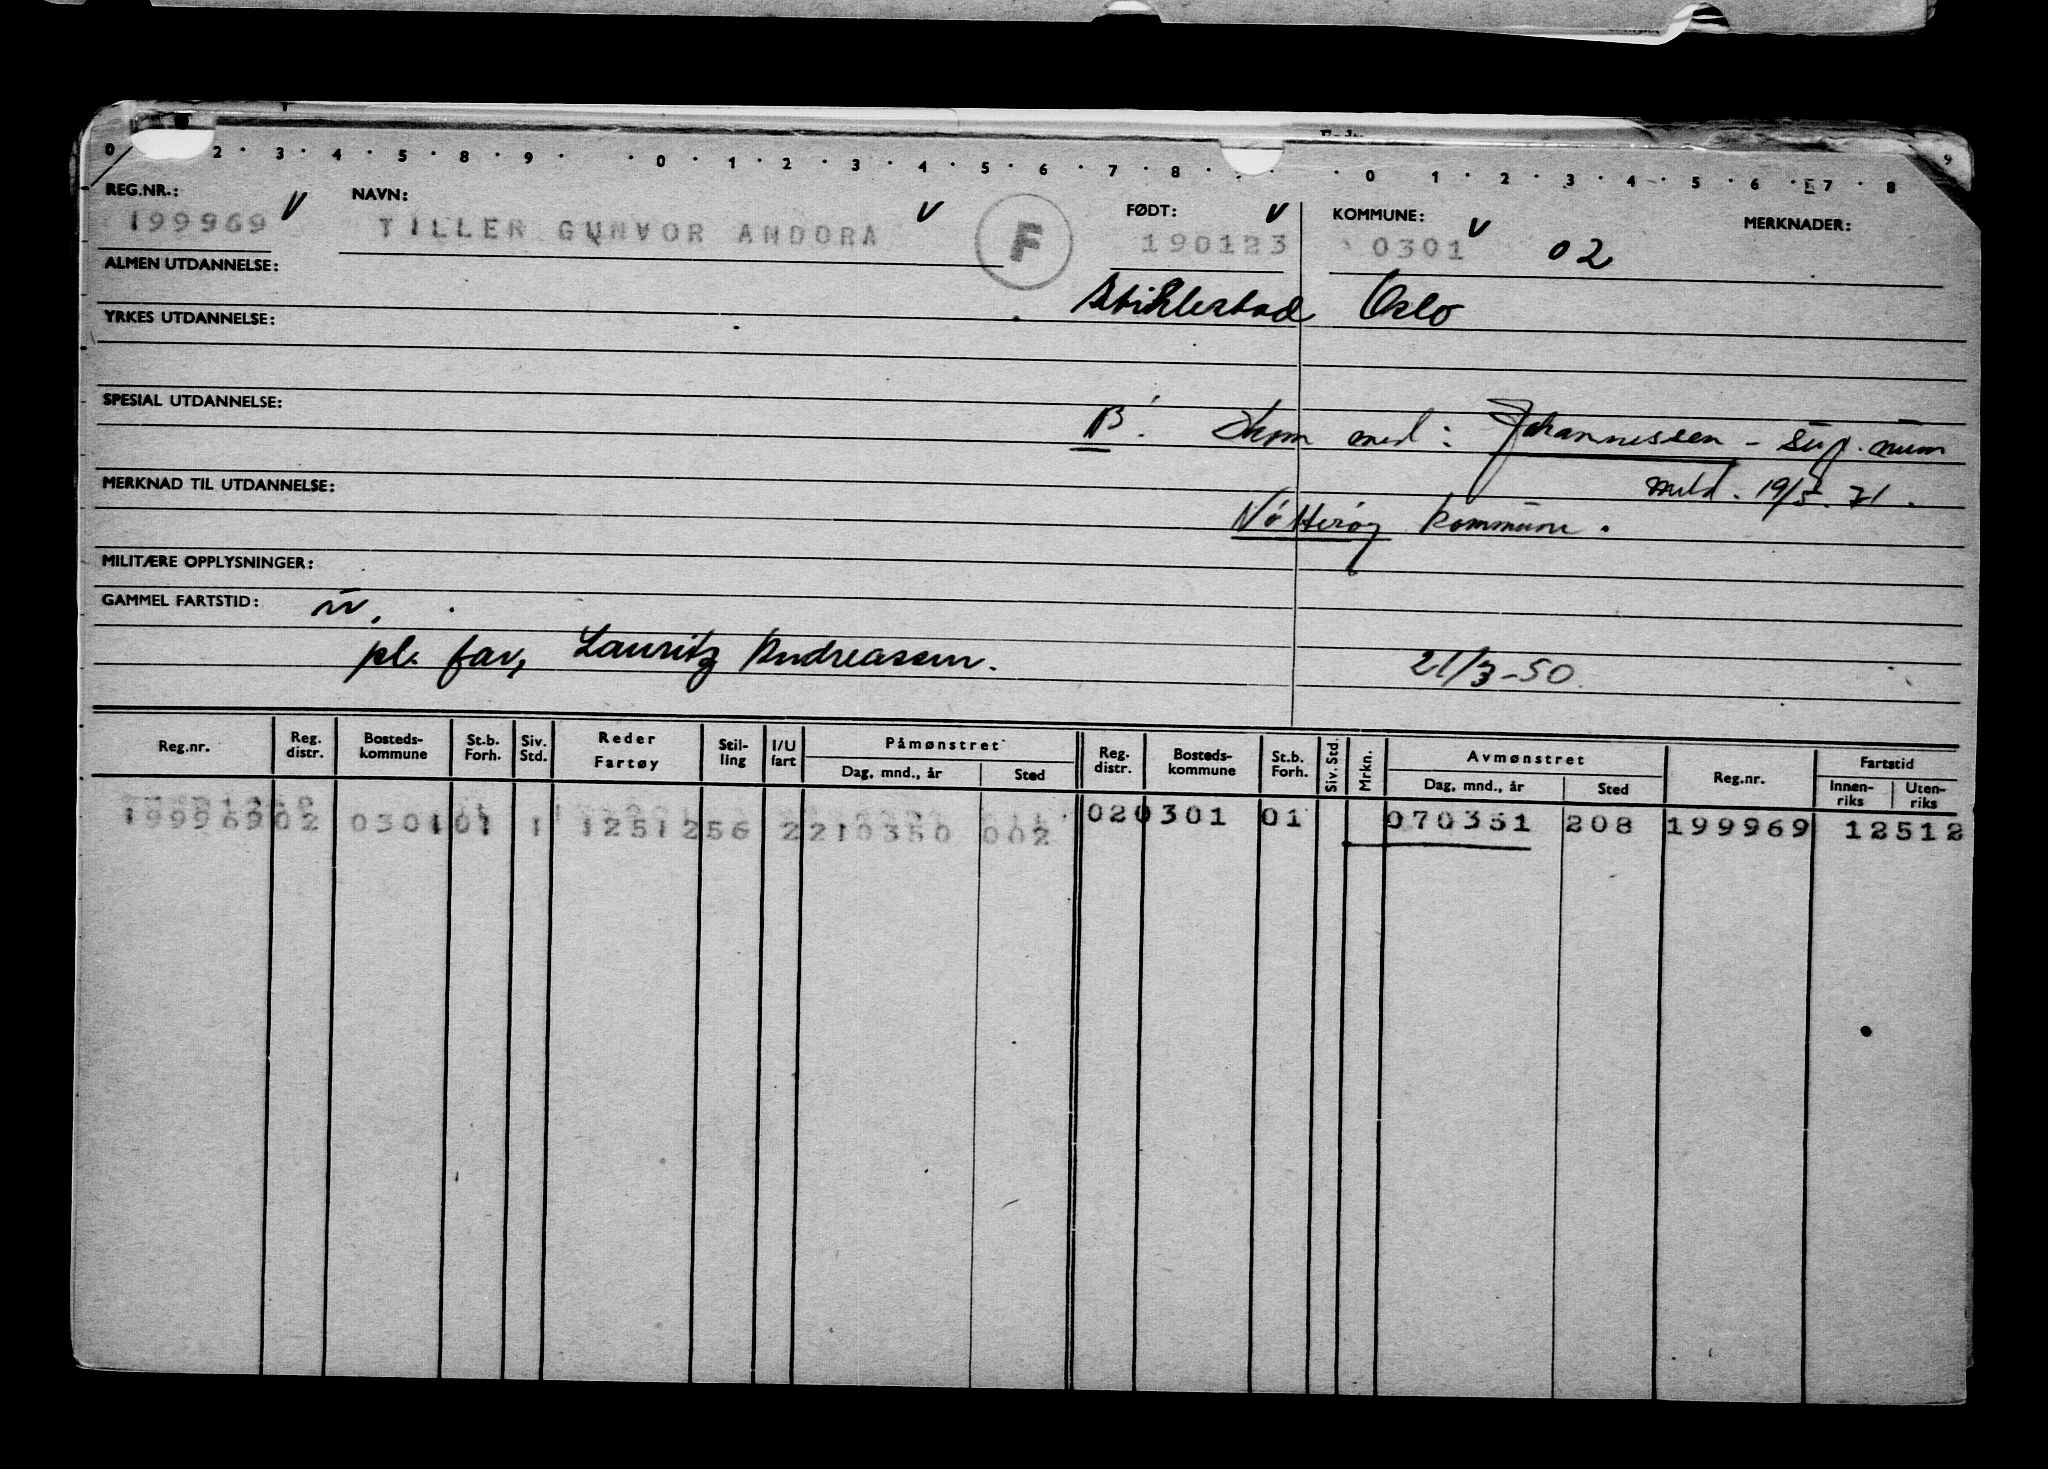 0 2 · 3 · 4 · 5 · 8 · 9 · · 0 · 1 · 2 · 3 · 4 · 5 · 6 · 7 · 8 · · · 0 · 1 · 2 · 3 · 4 · 5 · 6 · 7 · 8 9
REG.NR.: NAVN: FØDT: KOMMUNE: MERKNADER:
199969 V TILLER GUNVOR ANDORA V F 190123 V 0301 V 02
ALMEN UTDANNELSE:
Stiklestad Oslo
YRKES UTDANNELSE:
SPESIAL UTDANNELSE:
B. med: Johannessen - sup. num
MERKNAD TIL UTDANNELSE:
meld. 19/5.71.
Nøtterøy kommune.
MILITÆRE OPPLYSNINGER:
GAMMEL FARTSTID:
pl. far, Lauritz Andreassen. 21/3-50.
Reg.nr. Reg. distr. Bosteds-kommune St.b. Forh. Siv. Std. Reder Fartøy Stil-ling I/U fart Påmønstret Dag, mnd., år Sted Reg. distr. Bosteds-kommune St.b. Forh. Siv. Std. Mrkn. Avmønstret Dag, mnd., år Sted Reg.nr. Fartstid Innen-riks Uten-riks
199969 02 0301 01 1 1251256 2 210350 002 02 0301 01 070351 208 199969 12512